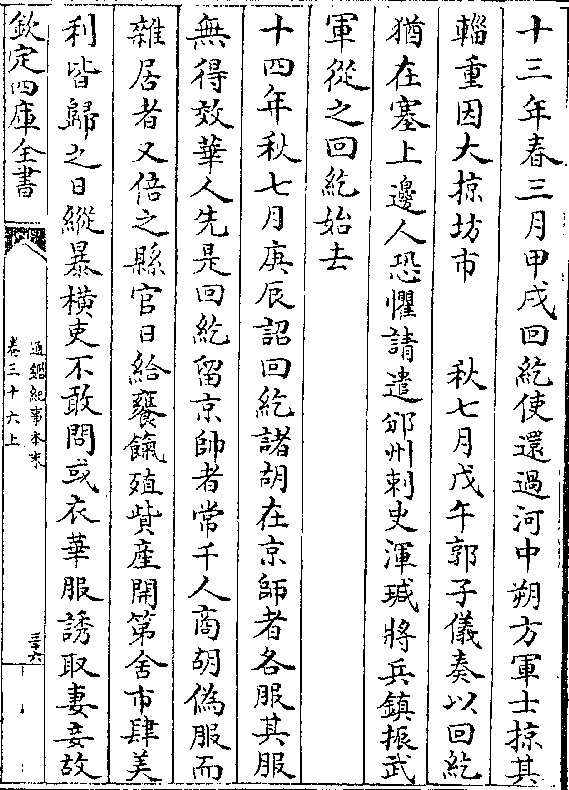 十三年春三月甲戌回紇使還過河中朔方軍士掠其
輜重因大掠坊市　秋七月戊午郭子儀奏以回紇
猶在塞上邊人恐懼請遣邠州刺史渾瑊將兵鎮振武
軍從之回紇始去
十四年秋七月庚辰詔回紇諸胡在京師者各服其服
無得效華人先是回紇留京師者常千人商胡偽服而
雜居者又倍之縣官日給饔餼殖貲產開第舍市肆美
利皆歸之日縱暴橫吏不敢問或衣華服誘取妻妾故
欽定四庫全書
通鑑紀事本末
卷三十六上
三六